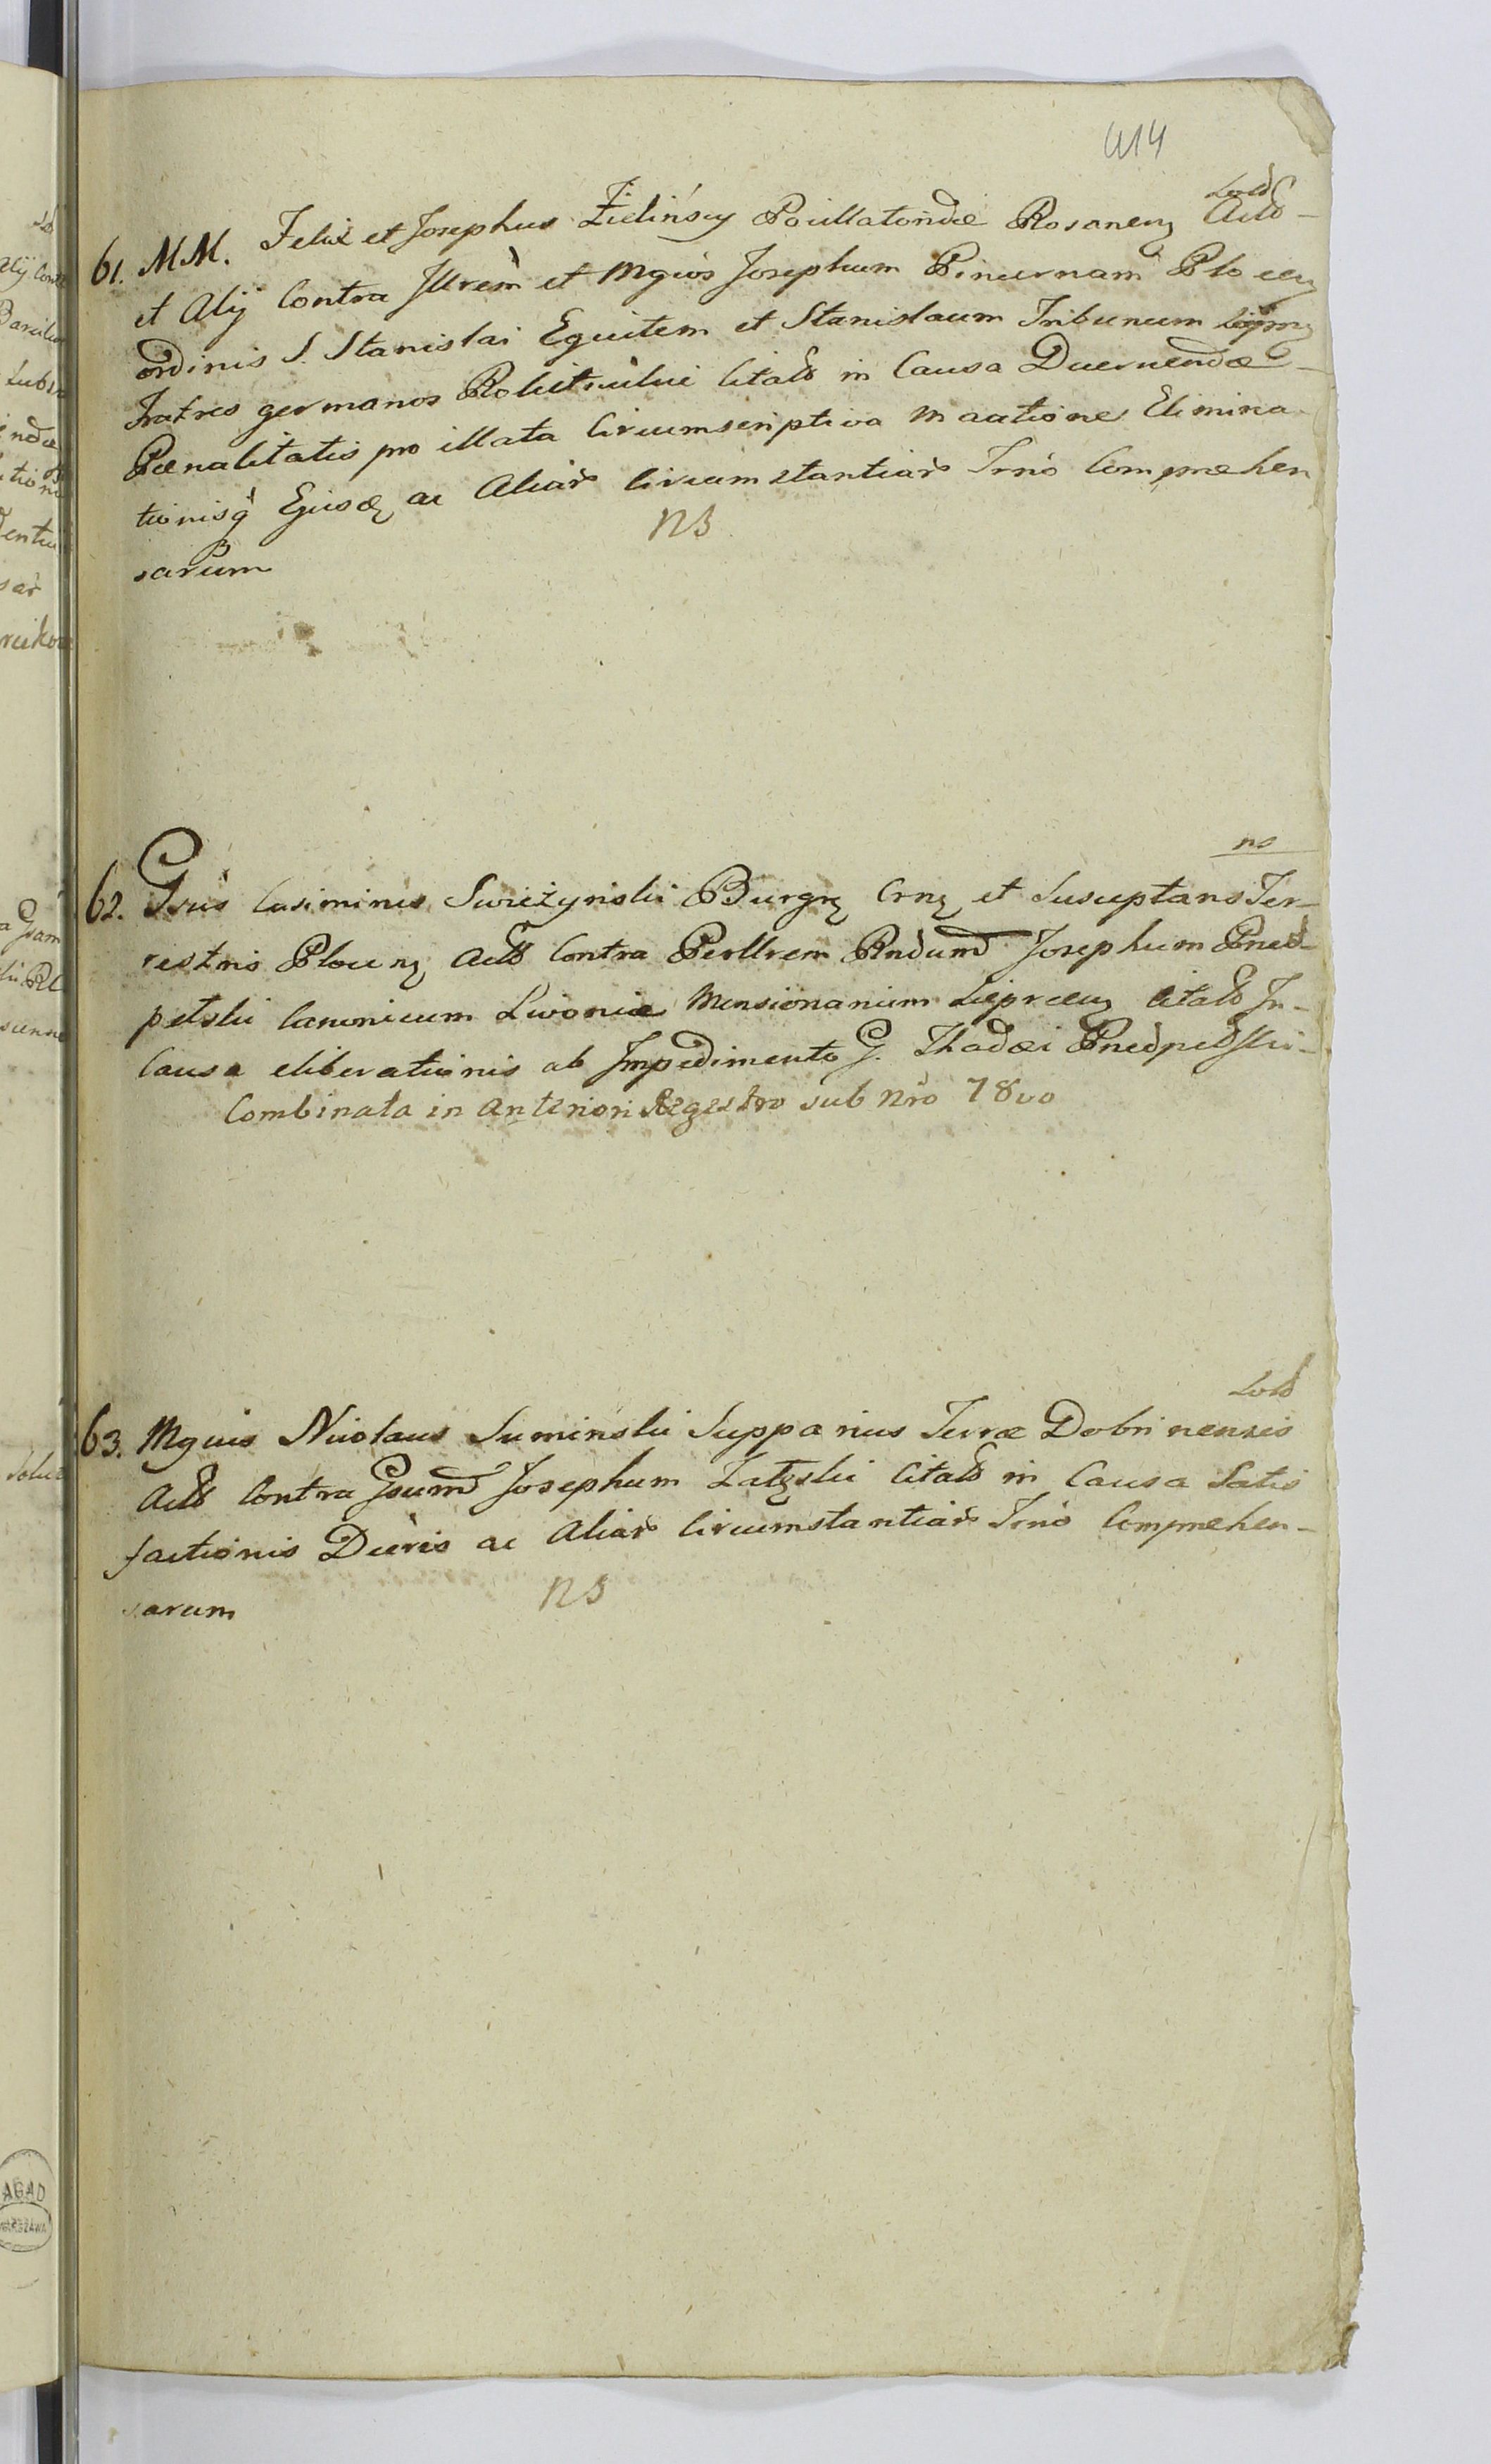 414
Sold
61. MM. Felix et Josephus Zielińscy Pocillatoridæ Rosanen Actt
et Alij Contra Jllrem et Mgcos Josephum Pincernam Plocen
ordinis S. Stanislai Equitem et Stanislaum Tribunum
Fratres germanos Citatt in Causa Decernendæ
Pænalitatis pro illata Circumscriptiva Elimina
tionisq Ejusd ac Aliar Circumstantiar Trno Compræhen
sarum
NS
ns
62. Gsus Casimirus Swieżynski Burgr Crn et Susceptans Ter-
restris Plocen Actt Contra Perllrem Rndum Josephum Przed
petski Canonicum Livoniæ Mansionarium Citatt In
Causa eliberationis ab Impedimento G. Thadæi Przedpedski
Combinata in Anteriori Regestro sub Nro 78vo
Sold
63. Mgcus Nicolaus Suminski Supparius Terræ Dobrinensis
Actt Contra Gsum Josephum Citatt in Causa Satis
factionis Decris ac Aliar Circumstantiar Trno Compræhen-
sarum
NS
AGAD
WARSZAWA